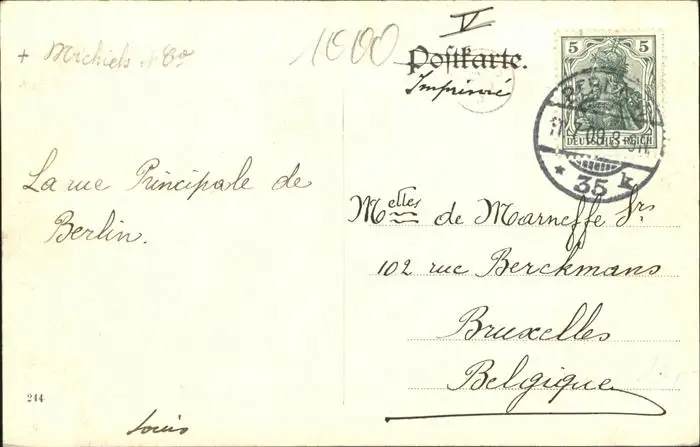 + Michiels & Co
1000
V
Postkarte.
Imprimé
5 5
DEUTSCHES REICH
BERLIN
17.7.09.8-9N.
* 35 k
La rue Principale de
Berlin.
Melles de Marneffe Srs
102 rue Berckmans
Bruxelles
Belgique
244
Louis